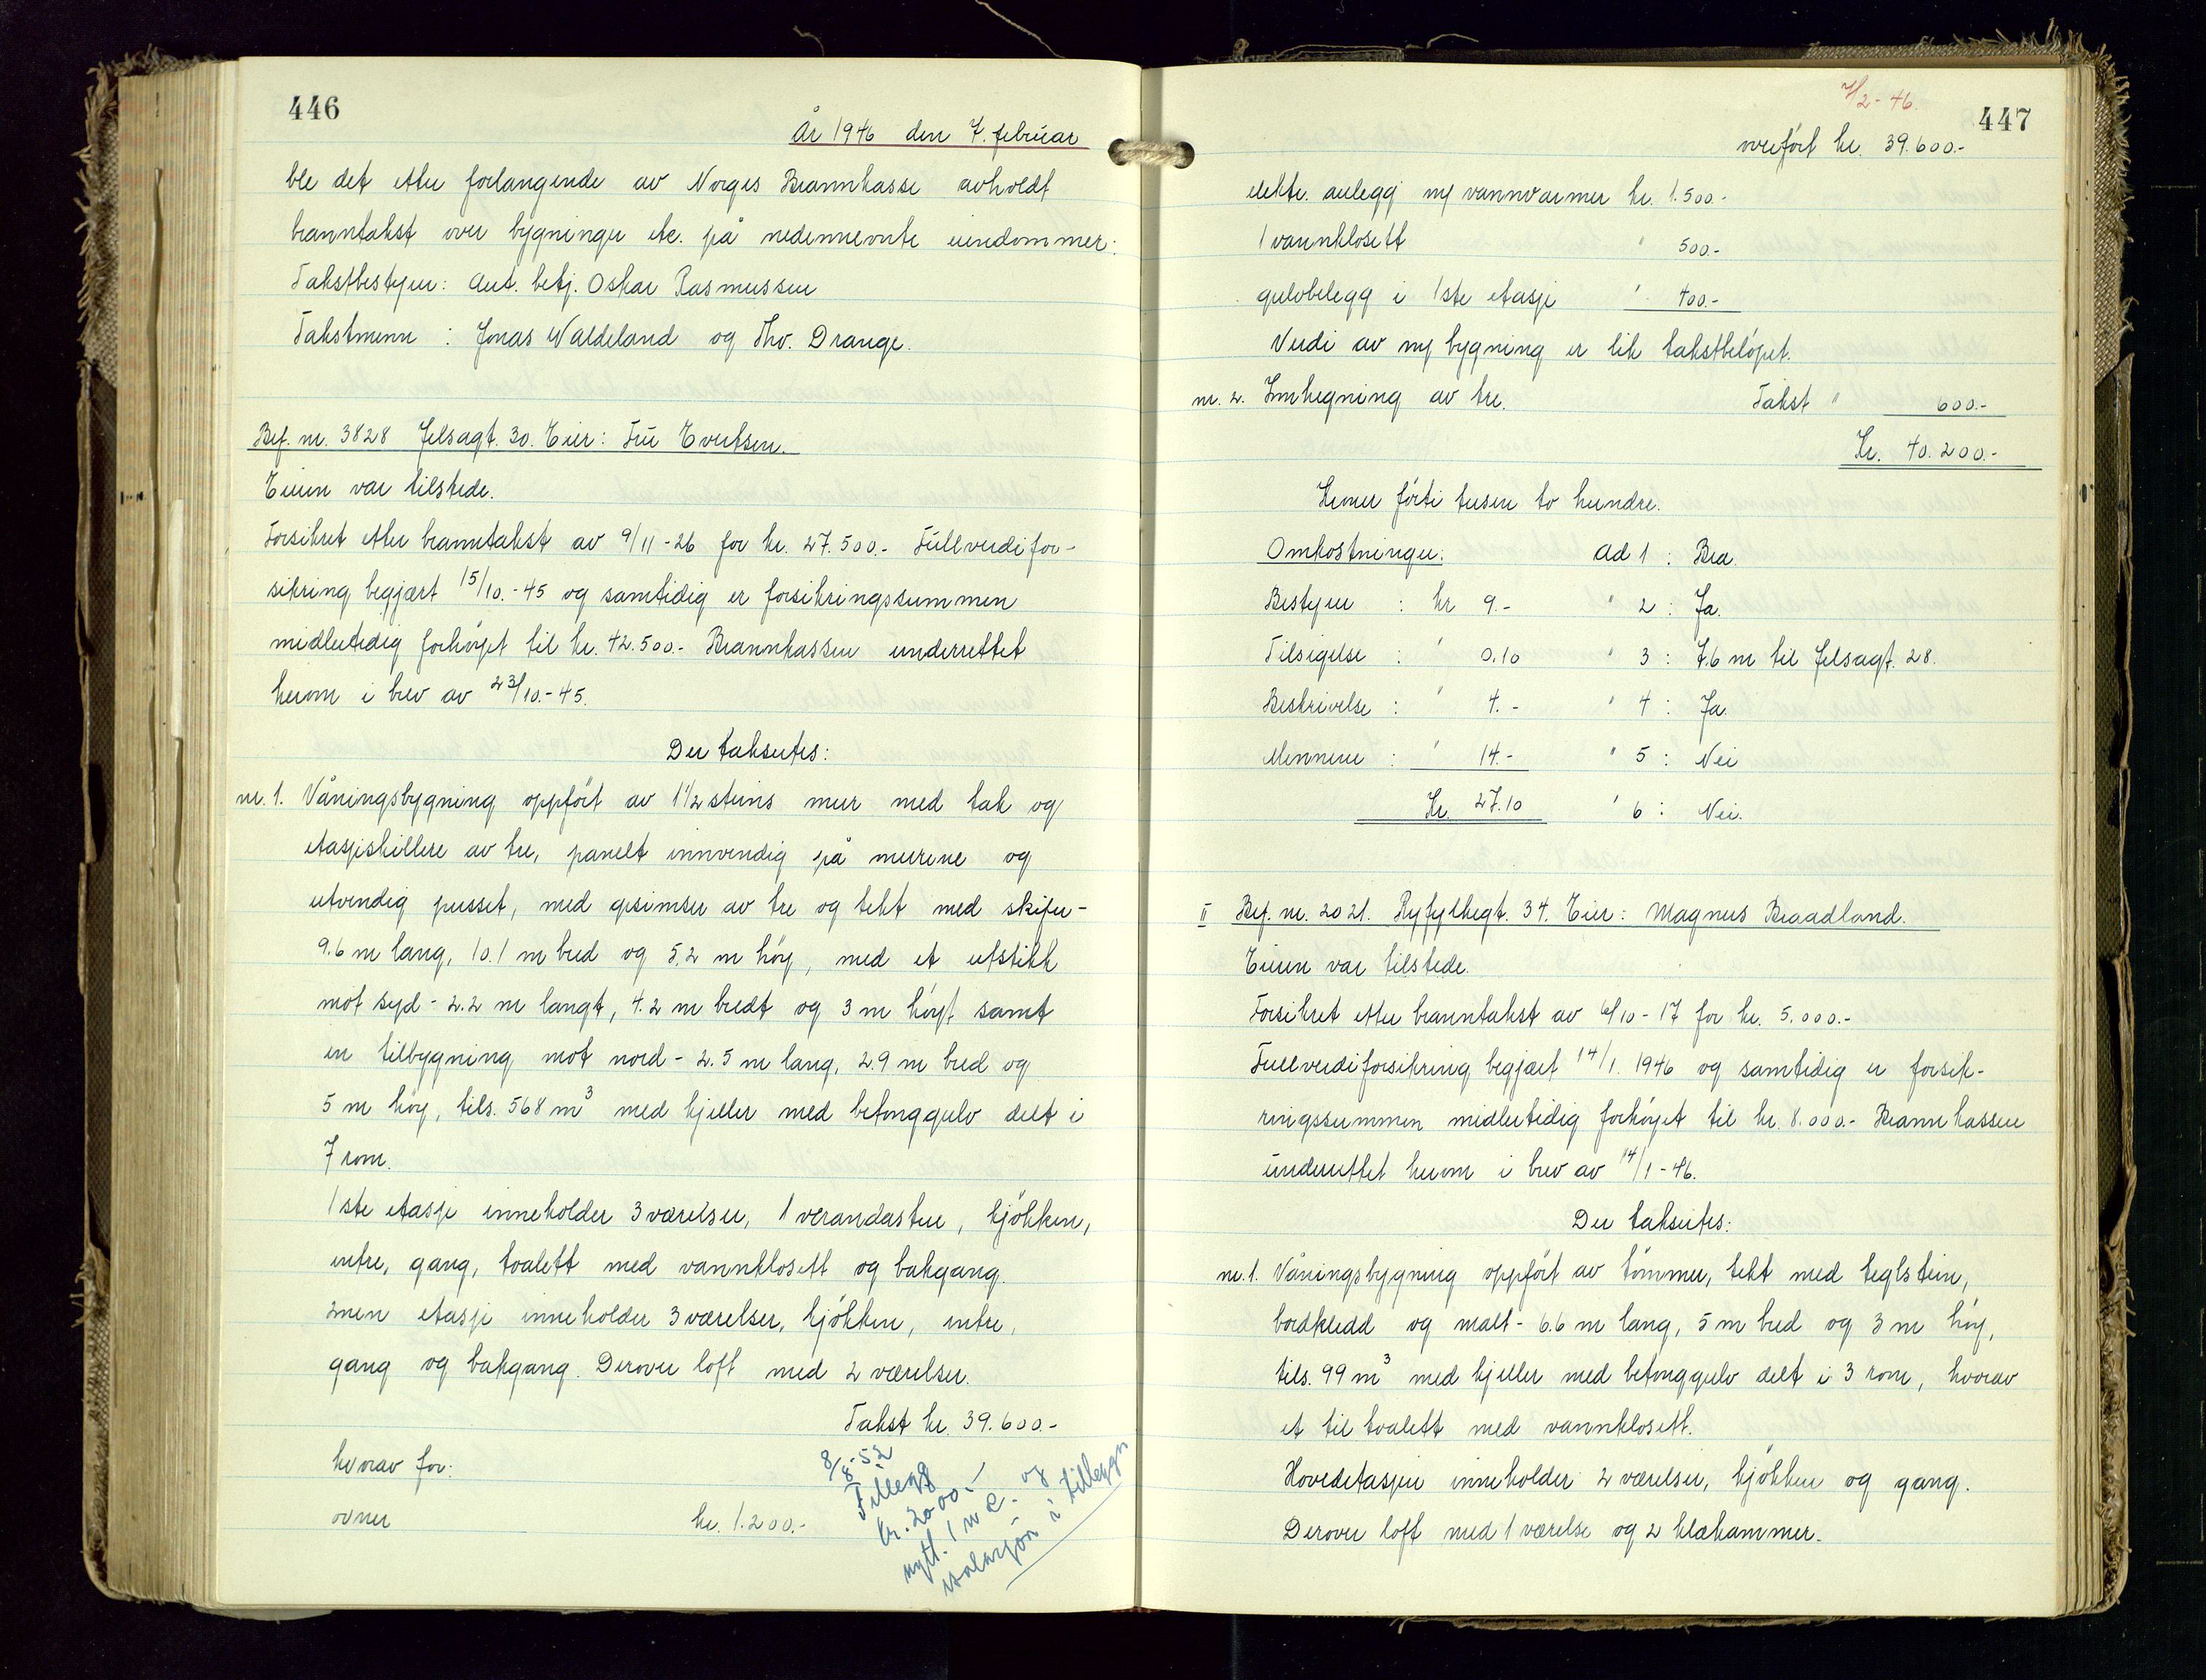 446
År 1946 den 7. februar
ble det etter forlangende av Norges Brannkasse avholdt
branntakst over bygninger etc. på nedennevnte eiendommer:
Takstbestyrer: Aut. betj. Oskar Rasmussen
Takstmenn : Jonas Waldeland og Thv. Drange.
Bef. nr. 3828 Jelsagt. 30. Eier: Fru Evertsen.
Eieren var tilstede.
Forsikret etter branntakst av 9/11-26 for kr. 27.500.- Fullverdifor-
sikring begjært 15/10.-45 og samtidig er forsikringssummen
midlertidig forhöyet til kr. 42.500.- Brannkassen underrettet
herom i brev av 23/10.-45.
Der takseres:
nr. 1. Våningsbygning oppfört av 1 1/2 steins mur med tak og
etasjeskillere av tre, panelt innvendig på murene og
utvendig pusset, med gesimser av tre og tekt med skifer-
9.6 m lang, 10.1 m bred og 5.2 m höy, med et utstikk
mot syd - 2.2 m langt, 4.2 m bredt og 3 m höyt samt
en tilbygning mot nord - 2.5 m lang, 2.9 m bred og
5 m höy, tils. 568 m³ med kjeller med betonggulv delt i
7 rom.
1ste etasje inneholder 3 værelser, 1 verandastue, kjökken,
entre, gang, toalett med vannklosett og bakgang.
2nen etasje inneholder 3 værelser, kjökken, entre,
gang og bakgang. Derover loft med 2 værelser.
Takst kr. 39.600.-
hvorav for:
ovner kr. 1.200.-
8/8-52
Tillegg
kr. 2000.-
nytt. 1 w.c. og
isolasjon i tilbygn
7/2-46.
447
overfört kr. 39.600.-
elektr. anlegg m/ vannvarmer kr. 1.500.-
1 vannklosett " 500.-
gulvbelegg i 1ste etasje " 400.-
Verdi av ny bygning er lik takstbelöpet.
nr. 2. Innhegning av tre. Takst " 600.-
Kr. 40.200.-
Kroner förti tusen to hundre.
Omkostninger: Ad 1 : Bra.
Bestyrer : kr 9.- " 2 : Ja.
Tilsigelse : " 0.10 " 3 : 7.6 m til Jelsagt. 28.
Beskrivelse : " 4.- " 4 : Ja.
Mennene : " 14.- " 5 : Nei
Kr. 27.10 " 6 : Nei.
II Bef. nr. 2021. Ryfylkegt. 34. Eier: Magnus Braadland.
Eieren var tilstede.
Forsikret etter branntakst av 6/10-17 for kr. 5.000.-
Fullverdiforsikring begjært 14/1. 1946 og samtidig er forsik-
ringssummen midlertidig forhöyet til kr. 8.000.- Brannkassen
underrettet herom i brev av 14/1-46.
Der takseres:
nr. 1. Våningsbygning oppfört av tömmer, tekt med teglstein,
bordkledd og malt - 6.6 m lang, 5 m bred og 3 m höy,
tils. 99 m³ med kjeller med betonggulv delt i 3 rom, hvorav
et til toalett med vannklosett.
Hovedetasjen inneholder 2 værelser, kjökken og gang.
Derover loft med 1 værelse og 2 klekammer.